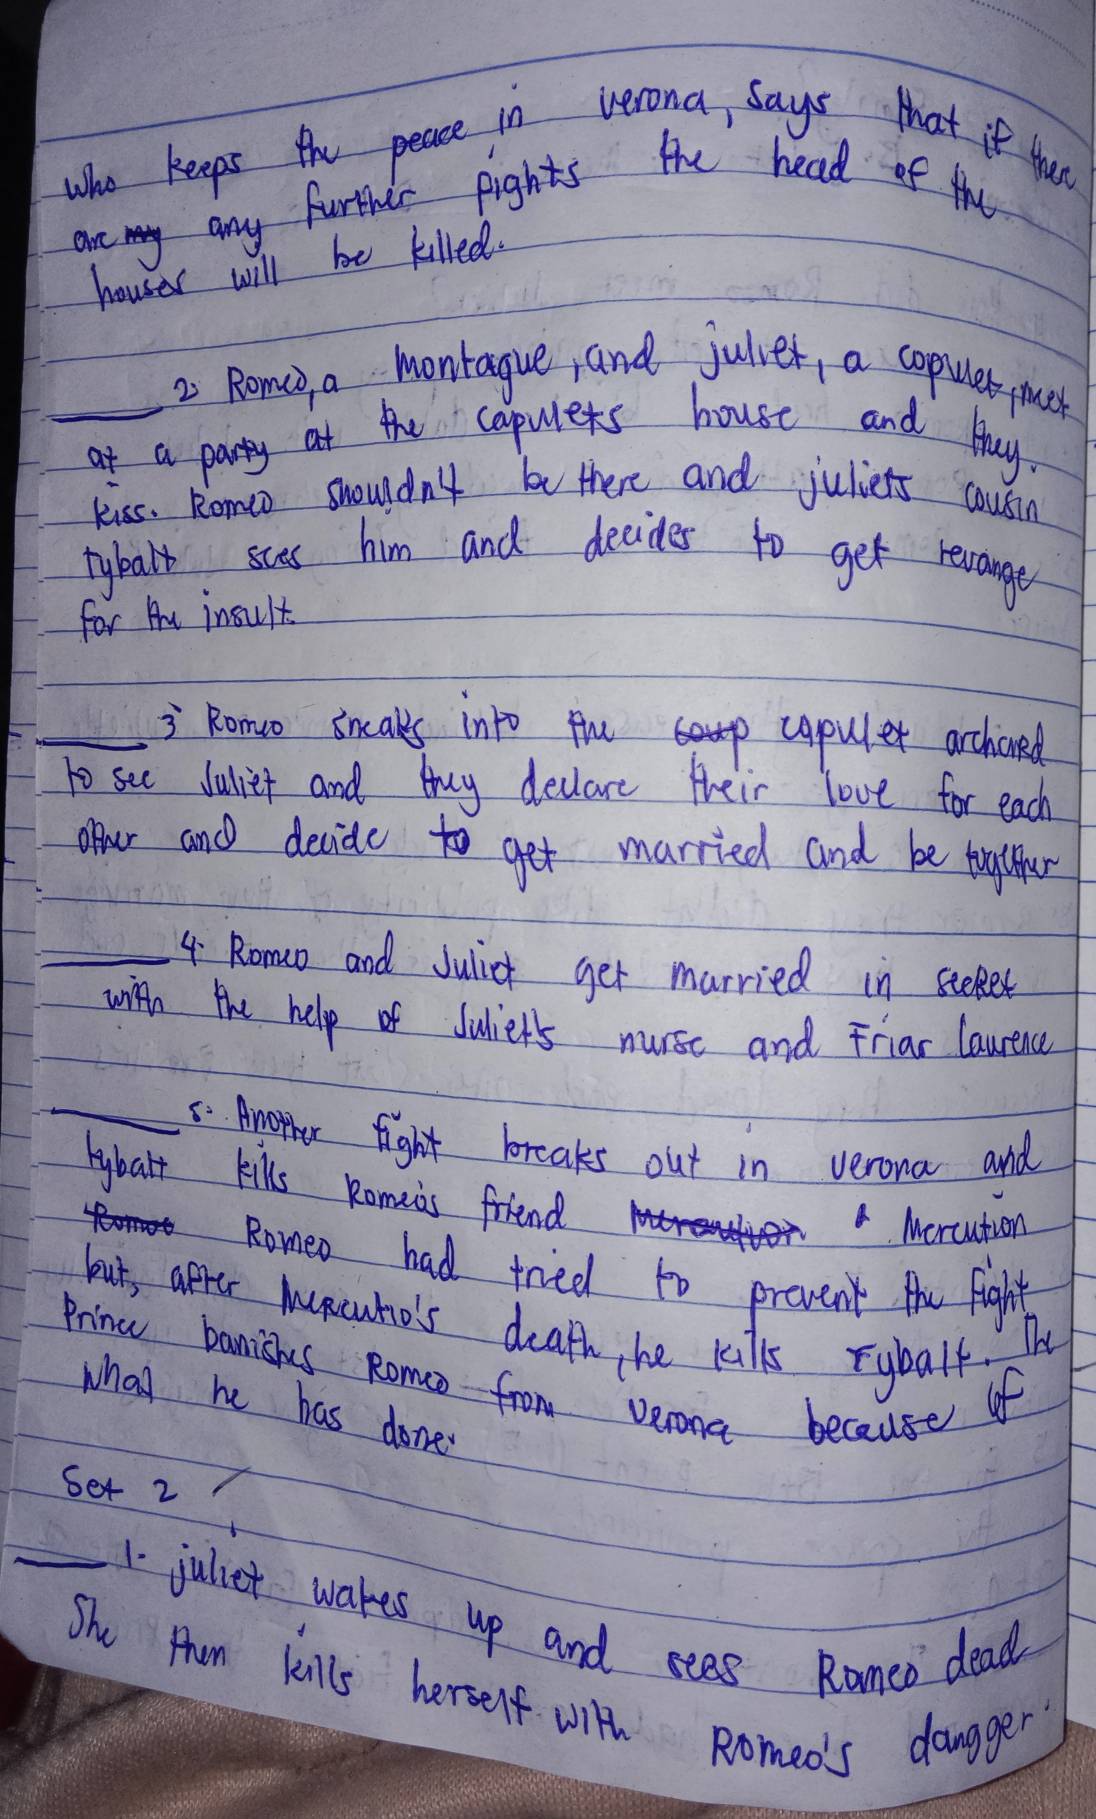 who keeps the peace in verona, says that if there
are my any further fights the head of the
houses will be killed.
2. Romeo, a montague, and juliet, a capulet, meet
at a party at the capulets house and they.
kiss. Romeo shouldn't be there and juliets cousin
tybalt sees him and decides to get revange
for the insult.
3 Romeo sneaks into the coup capulet archared
to see Juliet and they declare their love for each
other and decide to get married and be together
4. Romeo and Juliet get married in secret
with the help of Juliet's nurse and Friar Laurence
5. Another fight breaks out in verona and
tybalt kills Romeo's friend Mercution
Romeo Romeo had tried to prevent the fight
but, after Mercutio's death, he kills Tybalt. The
Prince banishes Romeo from verona because of
what he has done.
Set 2
1. juliet wakes up and sees Romeo dead
She then kills herself with Romeo's dangger.